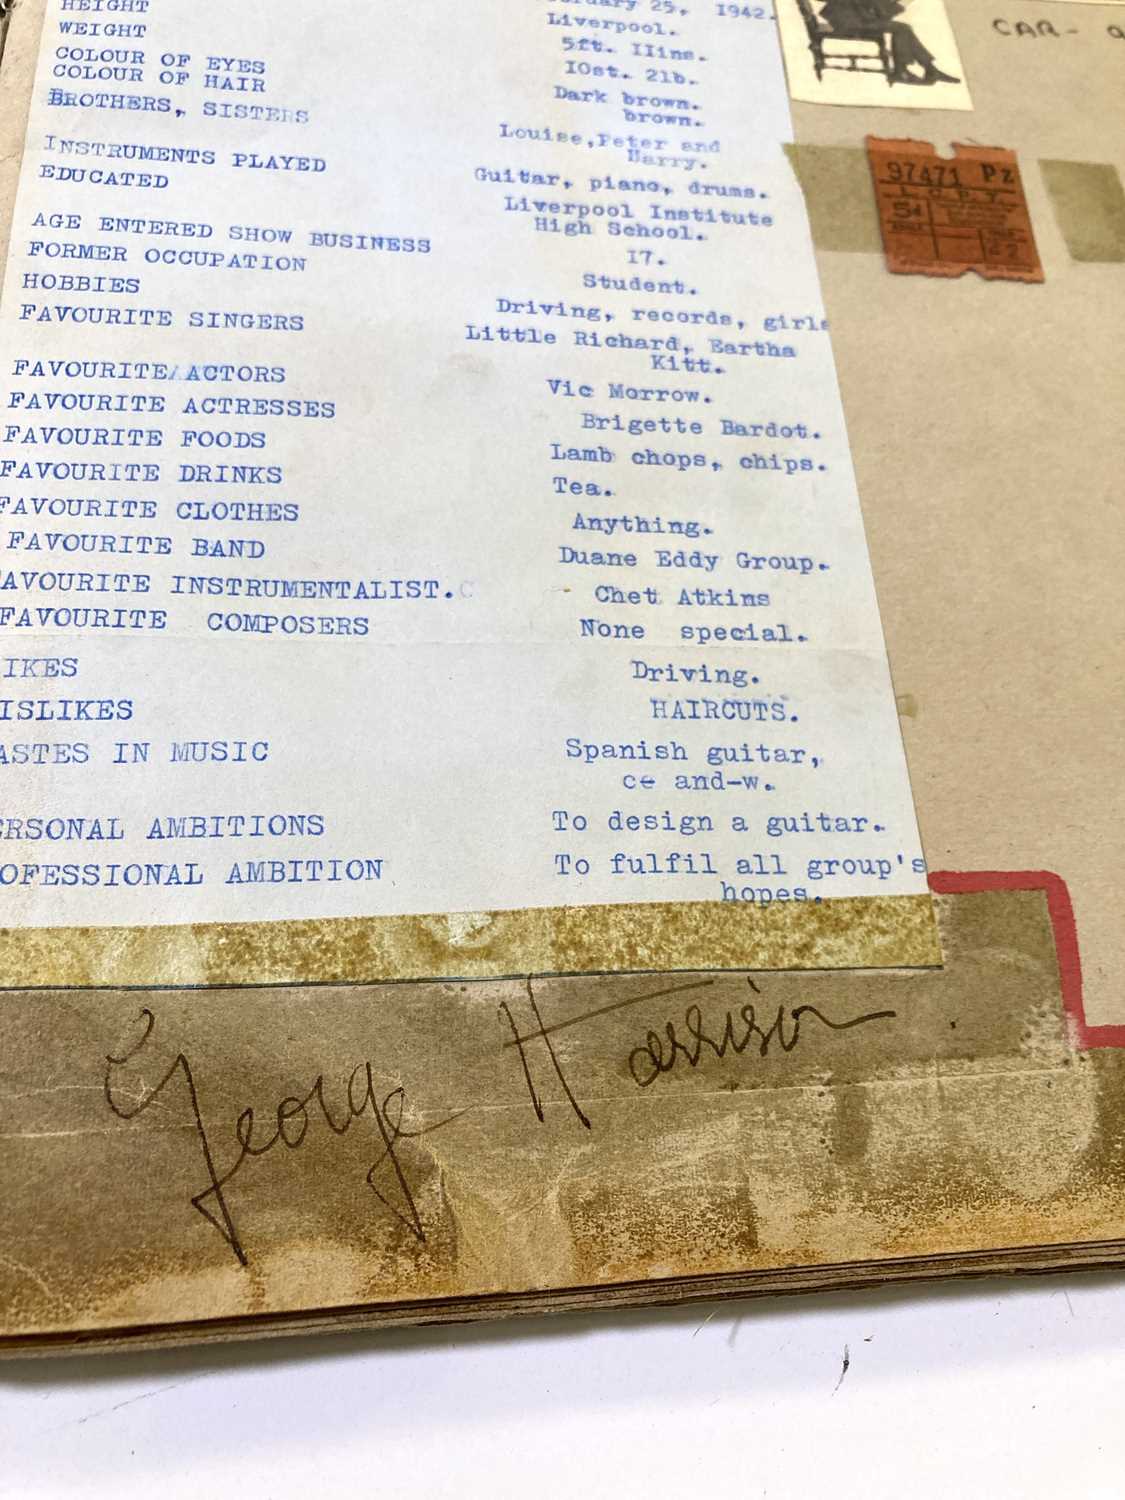 25, 1942.
HEIGHT Liverpool.
WEIGHT 5ft. IIins.
COLOUR OF EYES IOst. 2lb.
COLOUR OF HAIR Dark brown.
brown.
BROTHERS, SISTERS Louise,Peter and
Harry.
INSTRUMENTS PLAYED Guitar, piano, drums.
EDUCATED Liverpool Institute
High School.
AGE ENTERED SHOW BUSINESS I7.
FORMER OCCUPATION Student.
HOBBIES Driving, records, girls
FAVOURITE SINGERS Little Richard, Eartha
Kitt.
FAVOURITE/ACTORS Vic Morrow.
FAVOURITE ACTRESSES Brigette Bardot.
FAVOURITE FOODS Lamb chops, chips.
FAVOURITE DRINKS Tea.
FAVOURITE CLOTHES Anything.
FAVOURITE BAND Duane Eddy Group.
AVOURITE INSTRUMENTALIST. Chet Atkins
FAVOURITE COMPOSERS None special.
IKES Driving.
ISLIKES HAIRCUTS.
ASTES IN MUSIC Spanish guitar,
ce and-w.
ERSONAL AMBITIONS To design a guitar.
OFESSIONAL AMBITION To fulfil all group's
hopes.
George Harrison
CAR-
97471 Pz
5d
27